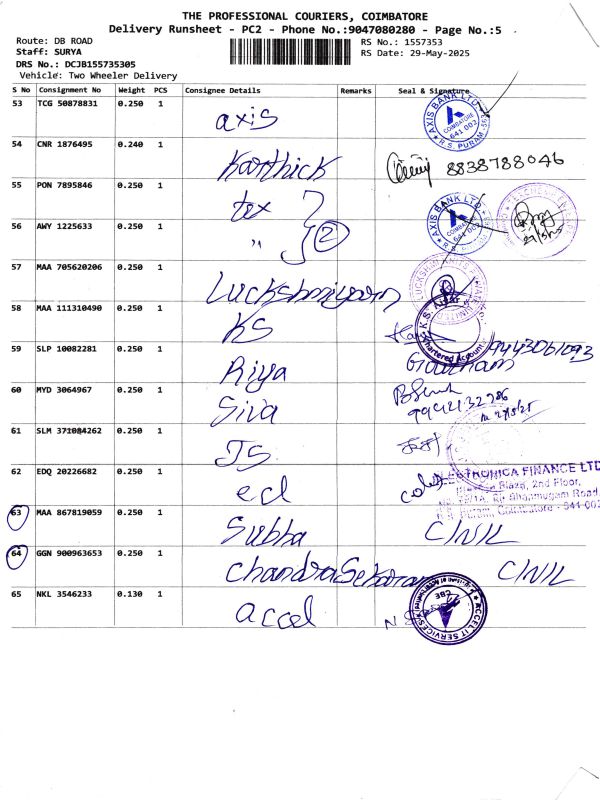 THE PROFESSIONAL COURIERS, COIMBATORE
Delivery Runsheet - PC2 - Phone No.:9047080280 - Page No.:5
Route: DB ROAD
RS No.: 1557353
Staff: SURYA
RS Date: 29-May-2025
DRS No.: DCJB155735305
Vehicle: Two Wheeler Delivery
S No Consignment No Weight PCS Consignee Details Remarks Seal & Signature
53 TCG 50878831 0.250 1 axis
AXIS BANK LTD. COIMBATORE 641 002 R.S. PURAM
54 CNR 1876495 0.240 1 Karthick 8838788046
55 PON 7895846 0.250 1 tex
AXIS BANK LTD. COIMBATORE 641 002 R.S. PURAM
56 AWY 1225633 0.250 1 " 2
57 MAA 705620206 0.250 1 Luckshmiyarn
58 MAA 111310490 0.250 1 KS
K.S. Chartered Accountant
59 SLP 10082281 0.250 1 Riya Goutham 9443061093
60 MYD 3064967 0.250 1 Siva
61 SLM 371084262 0.250 1 JS
62 EDQ 20226682 0.250 1 ecl
TRONICA FINANCE LTD
Plaza, 2nd Floor,
Shanmugam Road
Puram, Coimbatore - 641 002
63 MAA 867819059 0.250 1 Subha C/NIL
64 GGN 900963653 0.250 1 ChandraSekaran C/NIL
65 NKL 3546233 0.130 1 accel
ACCEL IT SERVICES